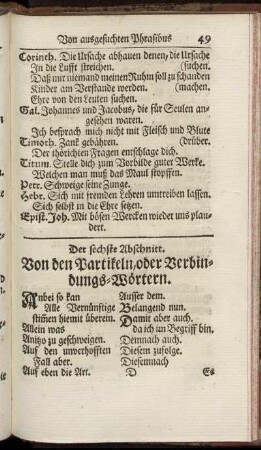 Von ausgesuchten Phrasibus 49
Corinth. Die Ursache abhauen denen, die Ursache
In die Lufft streichen. (suchen.
Daß mir niemand meinen Ruhm soll zu schanden
Kinder am Verstande werden. (machen.
Ehre von den Leuten suchen.
Gal. Johannes und Jacobus, die für Seulen an-
gesehen waren.
Ich besprach mich nicht mit Fleisch und Blute
Timoth. Zank gebähren. (drüber.
Der thörichten Fragen entschlage dich.
Titum. Stelle dich zum Vorbilde guter Werke.
Welchen man muß das Maul stopffen.
Petr. Schweige seine Zunge.
Hebr. Sich mit fremden Lehren umtreiben lassen.
Sich selbst in die Ehre setzen.
Epist. Joh. Mit bösen Wercken wieder uns plau-
dert.
Der sechste Abschnitt.
Von den Partikeln, oder Verbin-
dungs-Wörtern.
Anbei so kan
Alle Vernünftige
stimen hiemit überein.
Allein was
Anitzo zu geschweigen.
Auf den unverhofften
Fall aber.
Auf eben die Art.
Ausser dem.
Belangend nun.
Damit aber auch.
da ich im Begriff bin.
Demnach auch.
Diesem zufolge.
Diesemnach
D Es